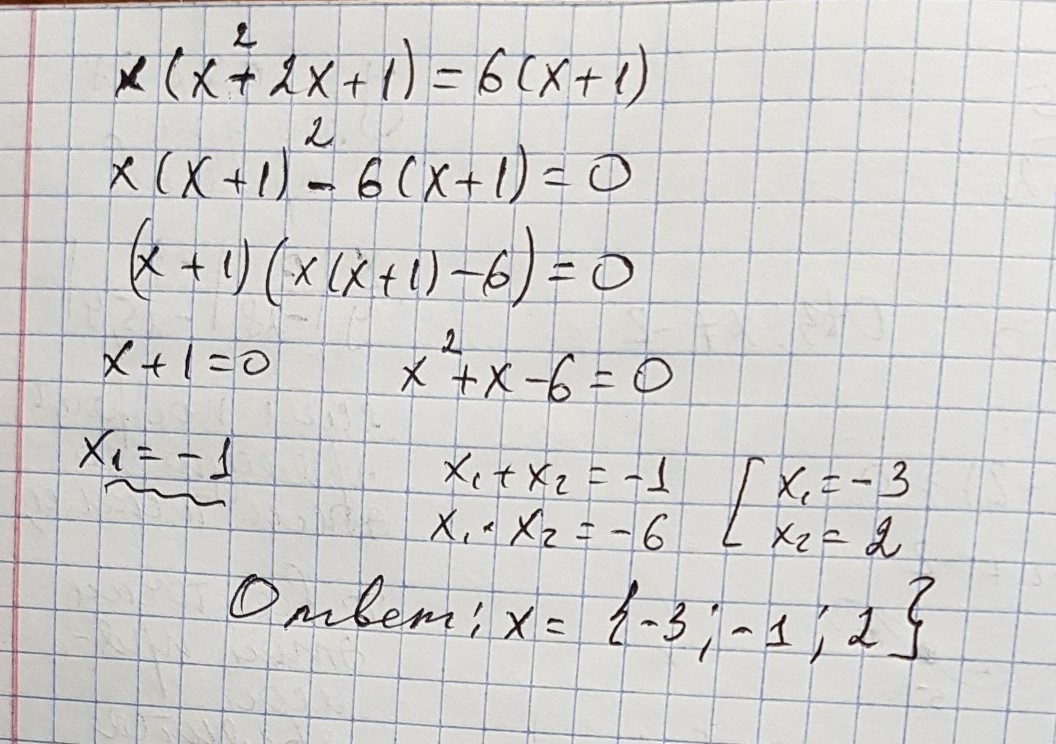 x(x²+2x+1)=6(x+1)
x(x+1)²-6(x+1)=0
(x+1)(x(x+1)-6)=0
x+1=0    x²+x-6=0
x₁=-1    x₁+x₂=-1    [x₁=-3
x₁·x₂=-6    x₂=2
Ответ: x={-3;-1;2}